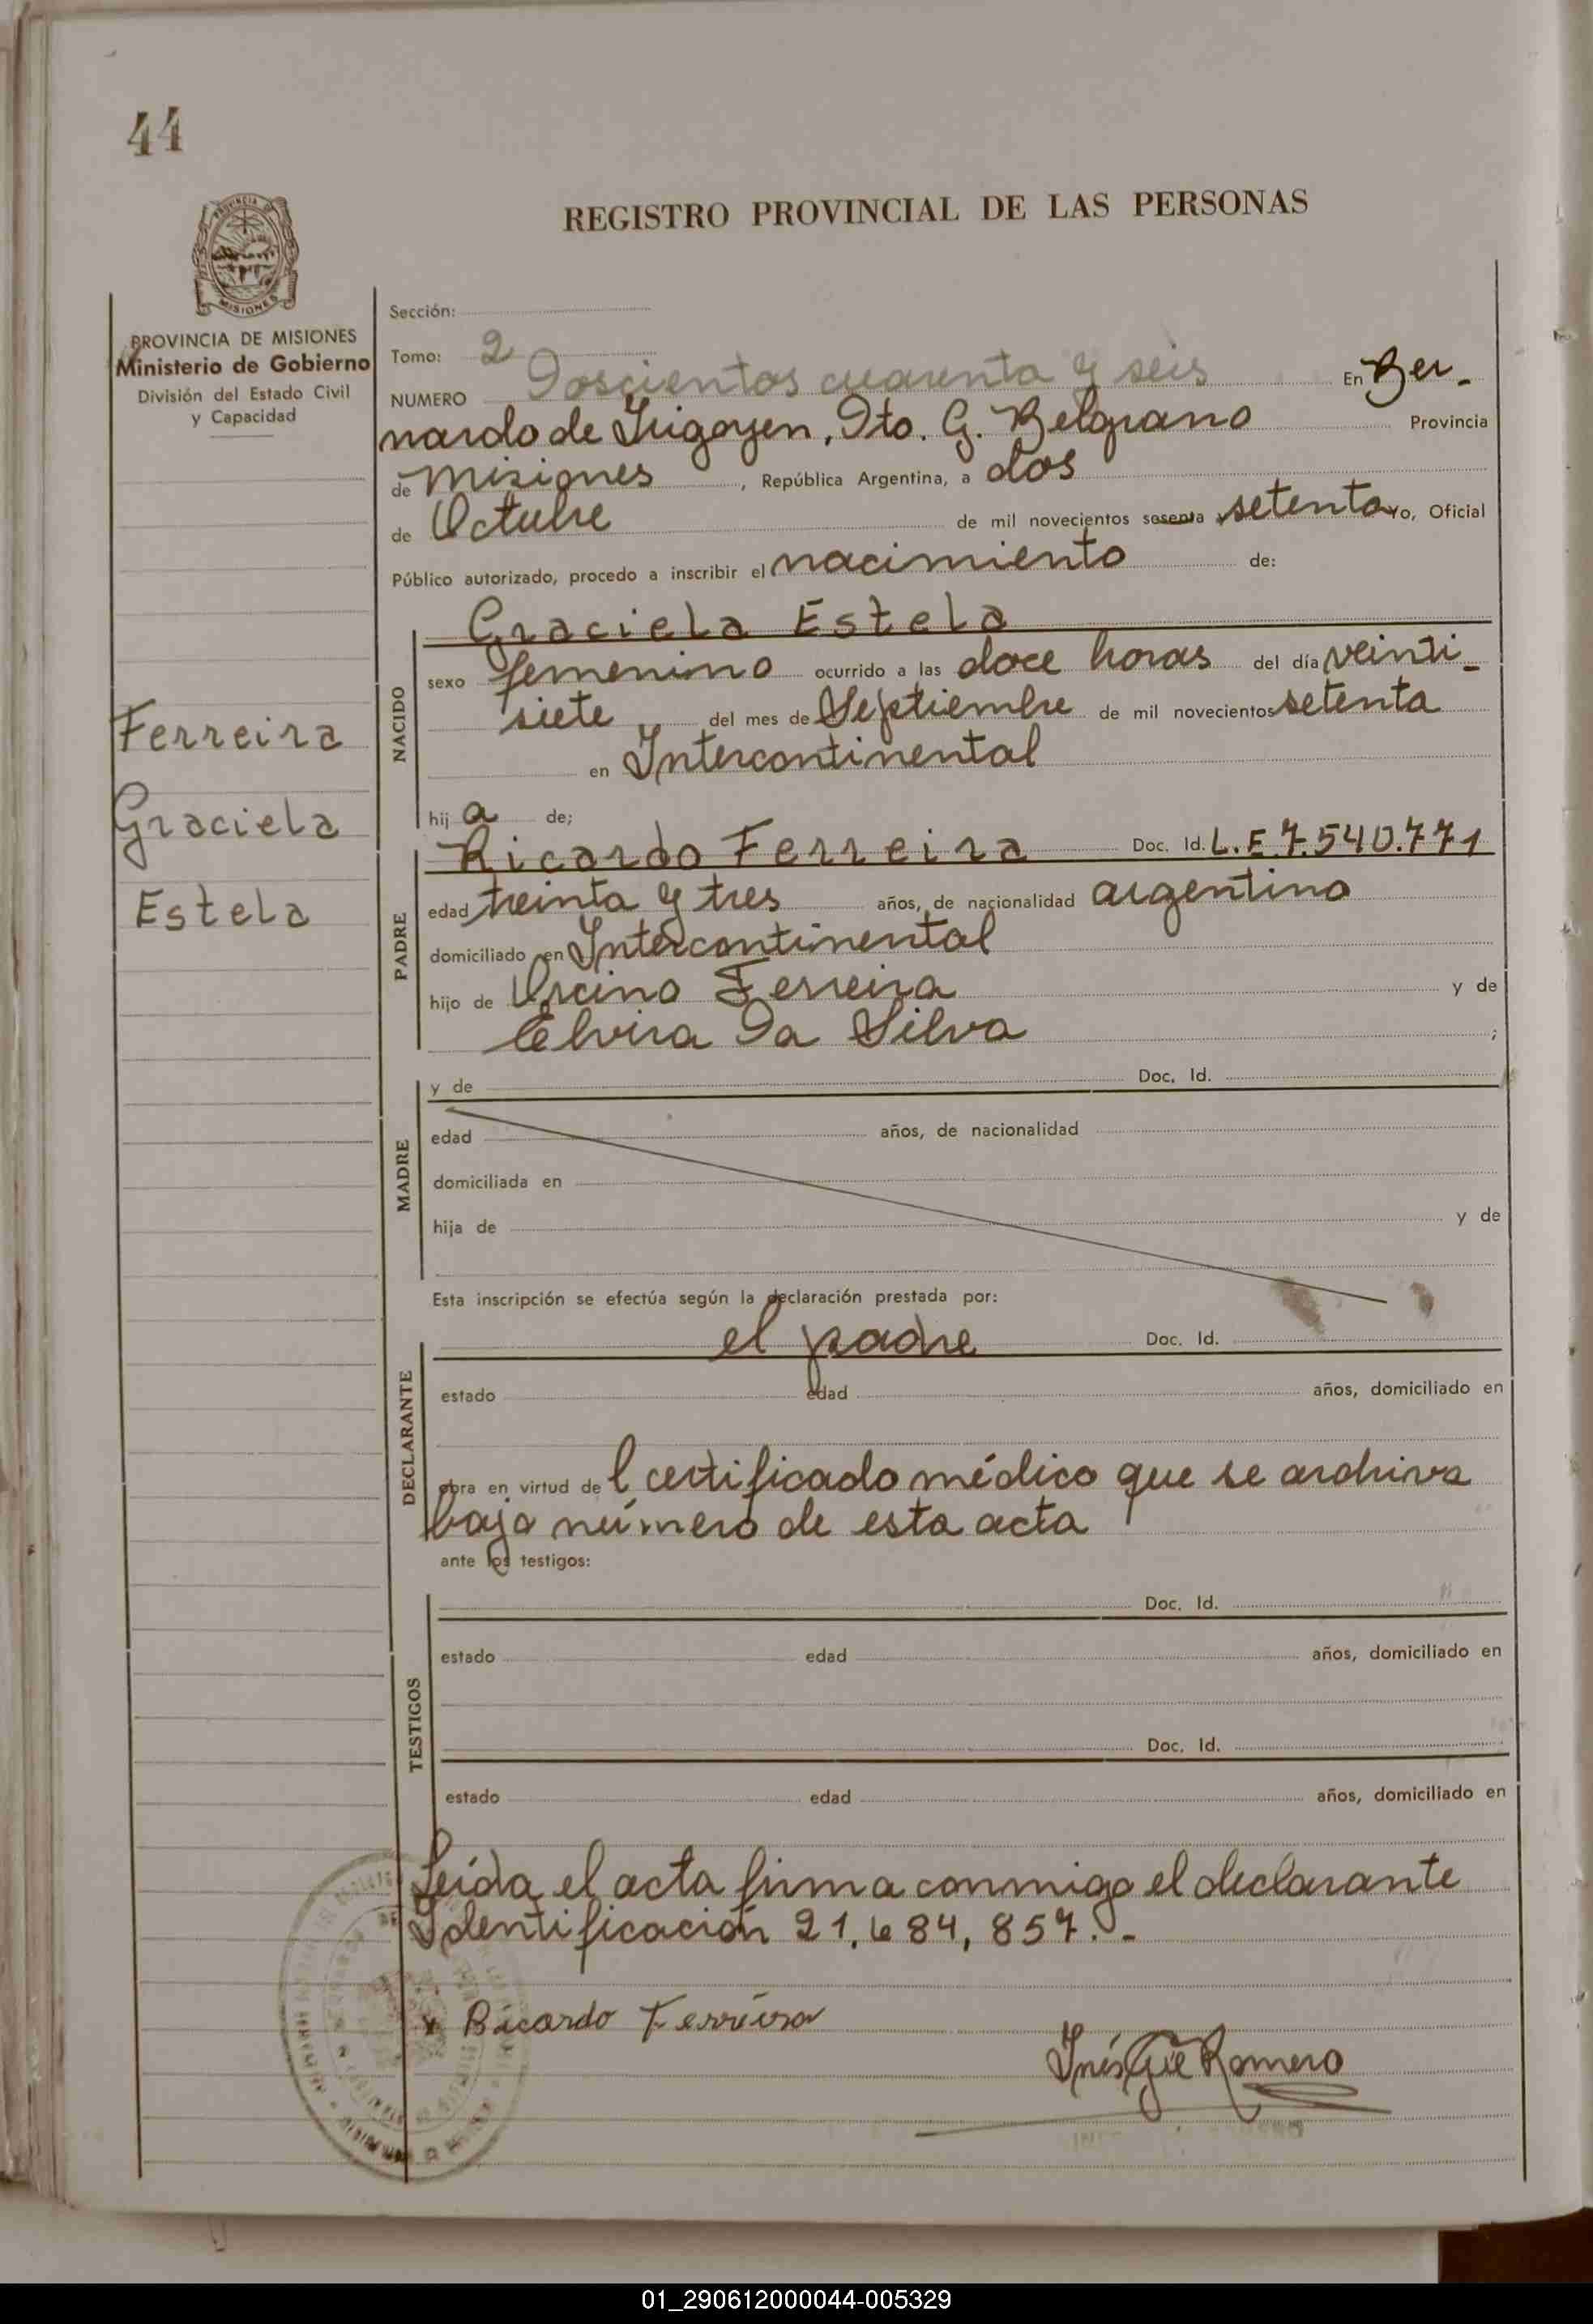 44
REGISTRO PROVINCIAL DE LAS PERSONAS
PROVINCIA DE MISIONES
Ministerio de Gobierno
División del Estado Civil
y Capacidad
Sección:
Tomo: 2
NUMERO Doscientos cuarenta y seis En Ber-
nardo de Irigoyen, Dto. G. Belgrano Provincia
de Misiones, República Argentina, a dos
de Octubre de mil novecientos sesenta y setenta Yo, Oficial
Público autorizado, procedo a inscribir el nacimiento de:
Ferreira
Graciela
Estela
NACIDO
Graciela Estela
sexo femenino ocurrido a las doce horas del día veinti-
siete del mes de Septiembre de mil novecientos setenta
en Intercontinental
hija de;
PADRE
Ricardo Ferreira Doc. Id. L.E 7.540.771
edad treinta y tres años, de nacionalidad argentino
domiciliado en Intercontinental
hijo de Ferreira y de
Elvira Da Silva ;
MADRE
y de Doc. Id.
edad años, de nacionalidad
domiciliada en
hija de y de
Esta inscripción se efectúa según la declaración prestada por:
DECLARANTE
el padre Doc. Id.
estado edad años, domiciliado en
obra en virtud del certificado médico que se archiva
bajo número de esta acta
ante los testigos:
TESTIGOS
Doc. Id.
estado edad años, domiciliado en
Doc. Id.
estado edad años, domiciliado en
Leída el acta firma conmigo el declarante
Identificación 21.684,857.-
x Ricardo Ferreira
Inés Gil Romero
01_290612000044-005329